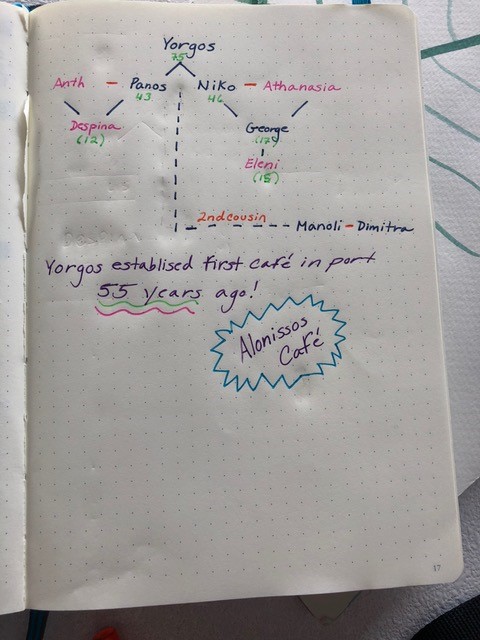 Yorgos
75
Anth - Panos Niko - Athanasia
43 46
Despina George
(12) (17)
Eleni
(15)
2nd cousin Manoli - Dimitra
Yorgos establised first café in port
55 years ago!
Alonissos
Café
17